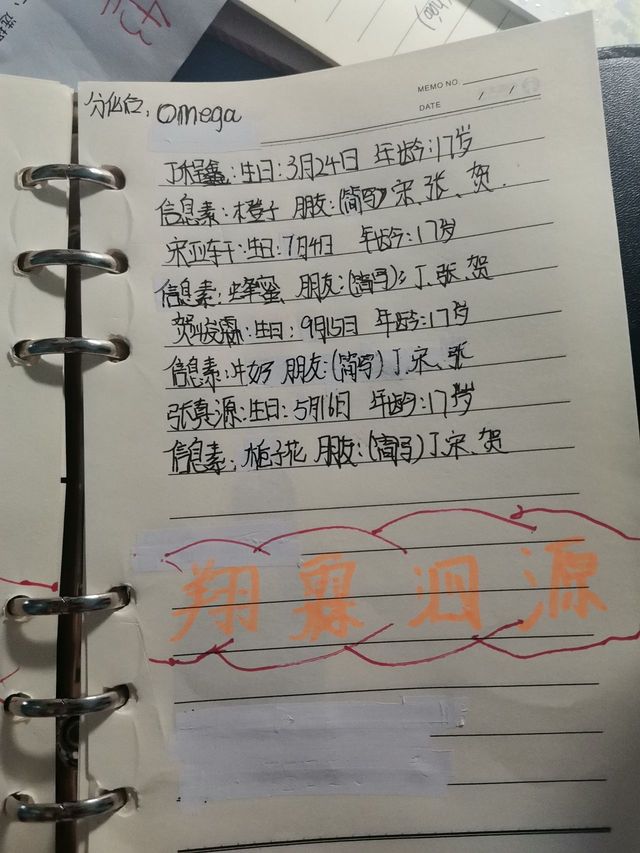 MEMO NO.
DATE / /
分化后：Omega
丁程鑫：生日：3月24日 年龄：17岁
信息素：橙子 朋友：(简写)宋、张、贺.
宋亚轩：生日：7月4日 年龄：17岁
信息素：蜂蜜 朋友：(简写)：丁、张、贺
贺峻霖：生日：9月15日 年龄：17岁
信息素：牛奶 朋友：(简写)丁、宋、张
张真源：生日：5月16日 年龄：17岁
信息素：栀子花 朋友：(简写)丁、宋、贺
翔霖泗源